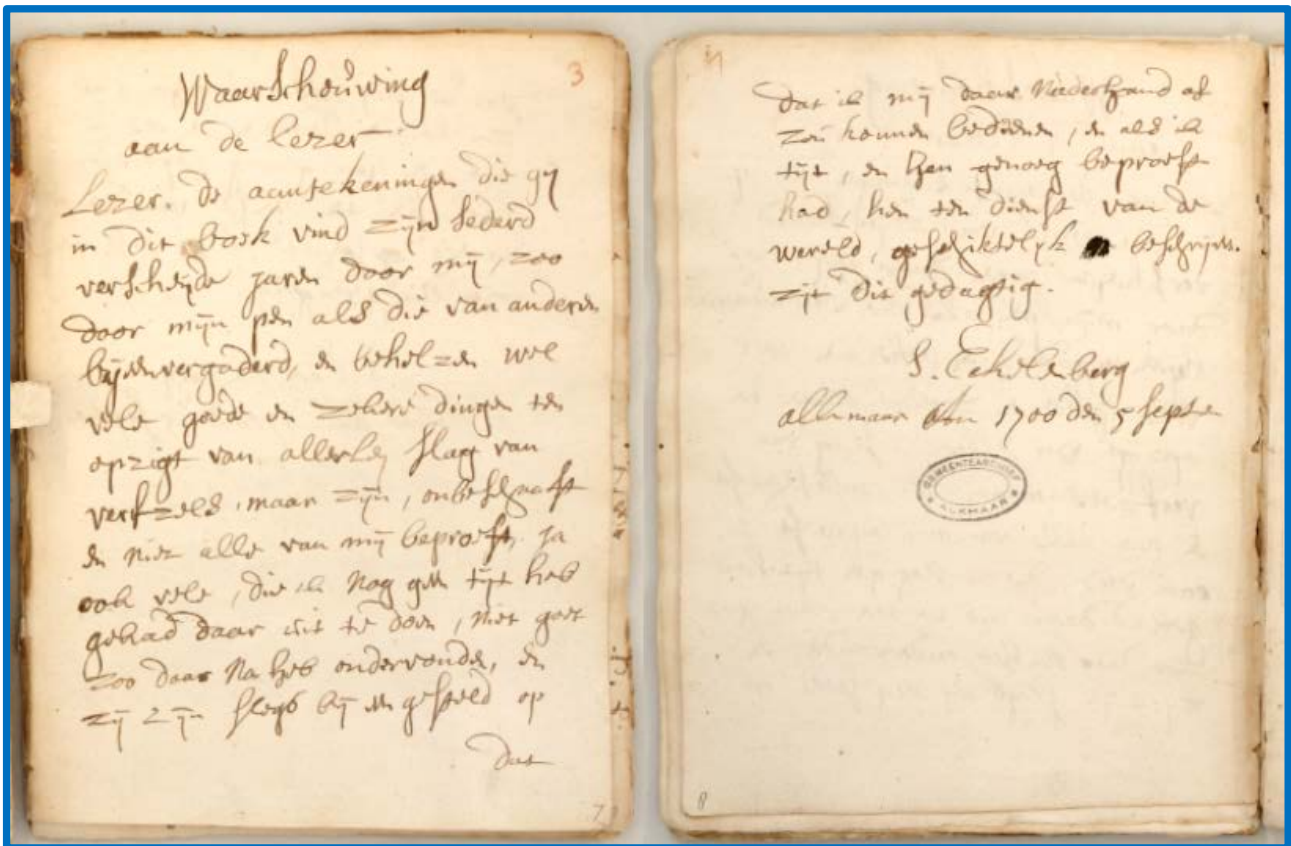 3
Waarschouwing
aan de lezer
Lezer. De aantekeningen die gy
in dit boek vind zijn sederd
verscheyde jaren door mij, zoo
door mijn pen als die van anderen
bijeenvergaderd, en behelzen wel
vele goede en zekere dingen ten
opzigt van allerley slag van
verfzels, maar zijn, onbeschaaft
en niet alle van mij beproeft, ja
ook vele, die ik nog geen tijt heb
gehad daar uit te doen, niet goet
zoo daar na heb ondervonden, en
zij zijn slegs bij een gesteld op
dat
7
4
dat ik mij daar naderhand af
zou konnen bedienen, en als ik
tijt, en hen genoeg beproeft
had, hen ten dienst van de
wereld, geschiktelyk beschrijven.
zijt dit gedagtig.
S. Eikelenberg
alkmaar 1700 den 5 septe
GEMEENTEARCHIEF
ALKMAAR
8